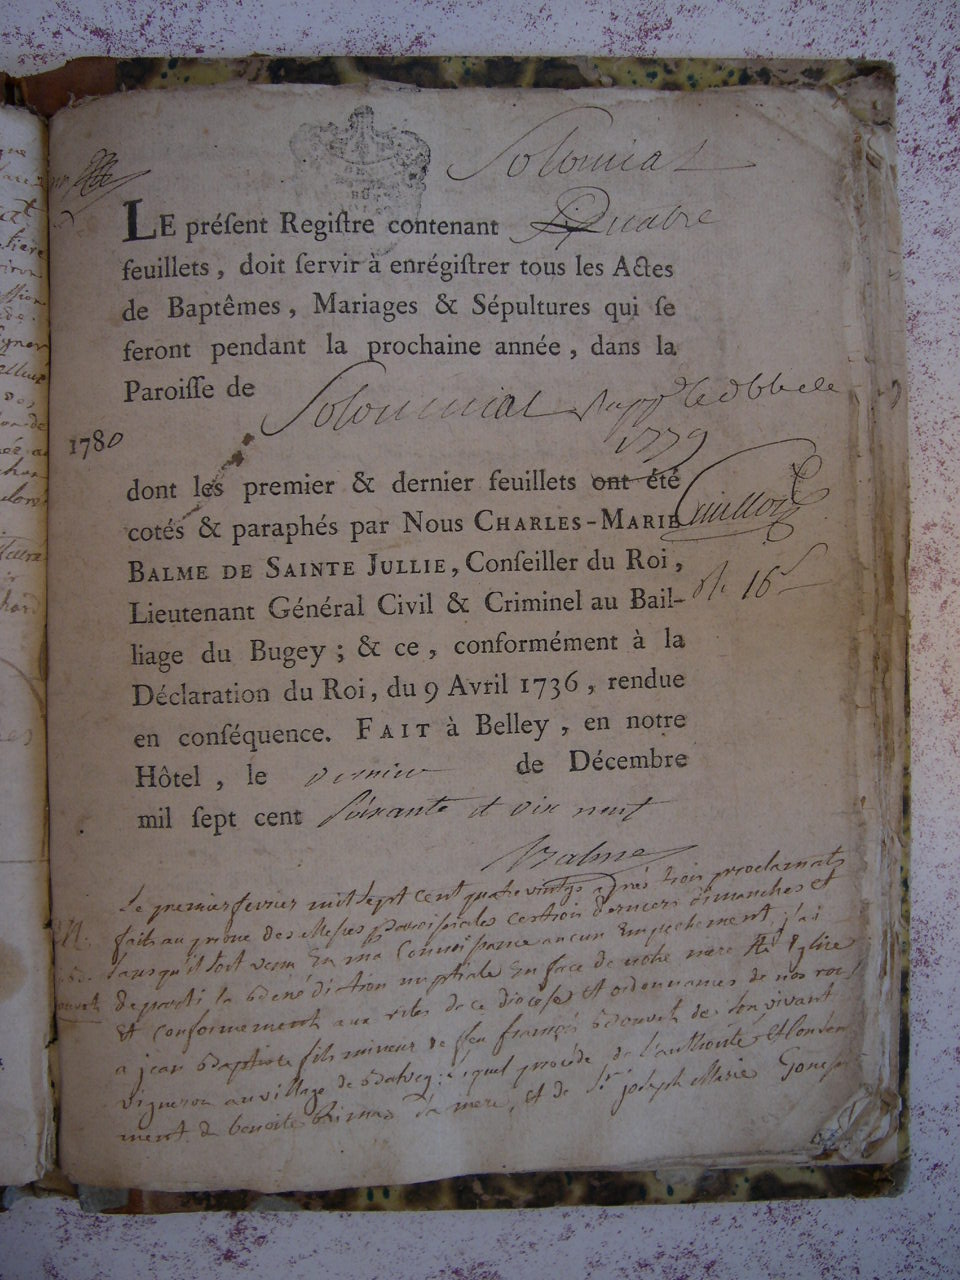 Solomiat
LE préſent Regiſtre contenant Quatre
feuillets, doit ſervir à enrégiſtrer tous les Actes
de Baptêmes, Mariages & Sépultures qui ſe
feront pendant la prochaine année, dans la
Paroiſſe de
Solommiat
1779
1780
dont les premier & dernier feuillets ont été
cotés & paraphés par Nous CHARLES-MARIE
BALME DE SAINTE JULLIE, Conſeiller du Roi,
Lieutenant Général Civil & Criminel au Bail-
liage du Bugey; & ce, conformément à la
Déclaration du Roi, du 9 Avril 1736, rendue
en conſéquence. FAIT à Belley, en notre
Hôtel, le dernier de Décembre
mil ſept cent soixante et dix neuf
Balme
Le premier fevrier mil sept cent quatre vingts après trois proclamats
faits au prone des Messes paroissiales ces trois derniers dimanches et
sans qu'il soit venu en ma connoissance aucun empechement j'ai
departi la bénédiction nuptiale en face de notre mere Ste Eglise
et conformement aux rites de ce diocese et ordonnances de nos rois
a jean Baptiste fils mineur de feu françois Bouvet de son vivant
vigneron au village de lequel procéde de l'authorité et consen
ment de benoite sa mere, et de Sr joseph Marie